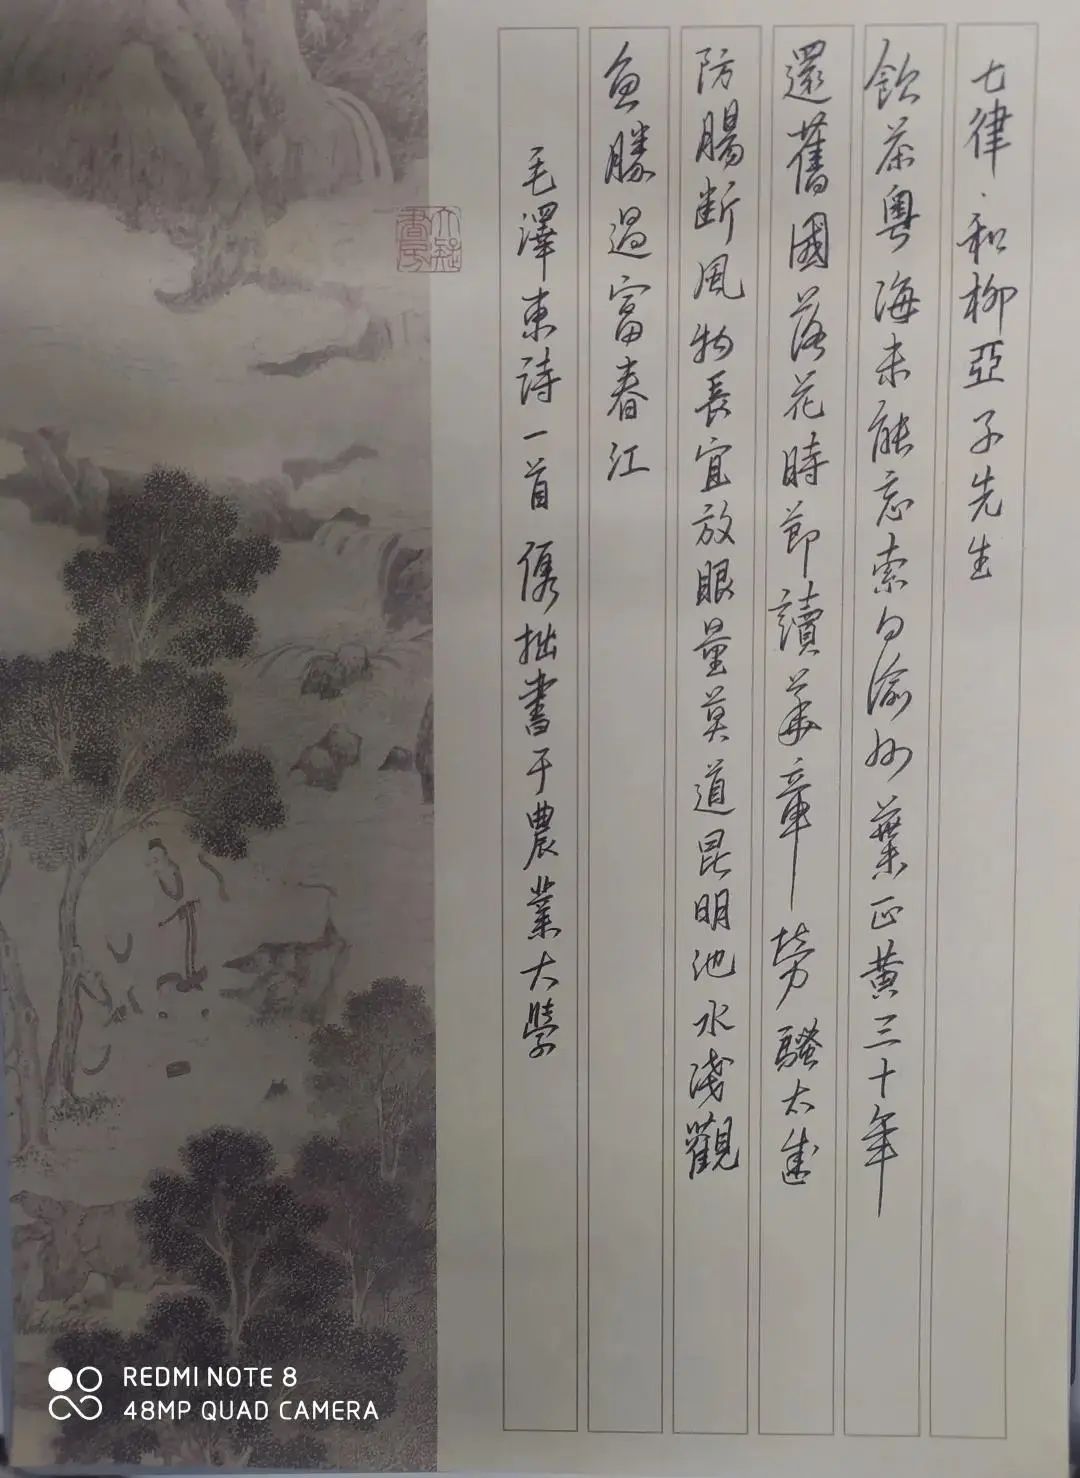 七律·和柳亞子先生
飲茶粵海未能忘索句渝州葉正黃三十年
還舊國落花時節讀華章勞騷太盛
防腸斷風物長宜放眼量莫道昆明池水淺觀
魚勝過富春江
毛澤東詩一首 拙書于農業大學
REDMI NOTE 8
48MP QUAD CAMERA